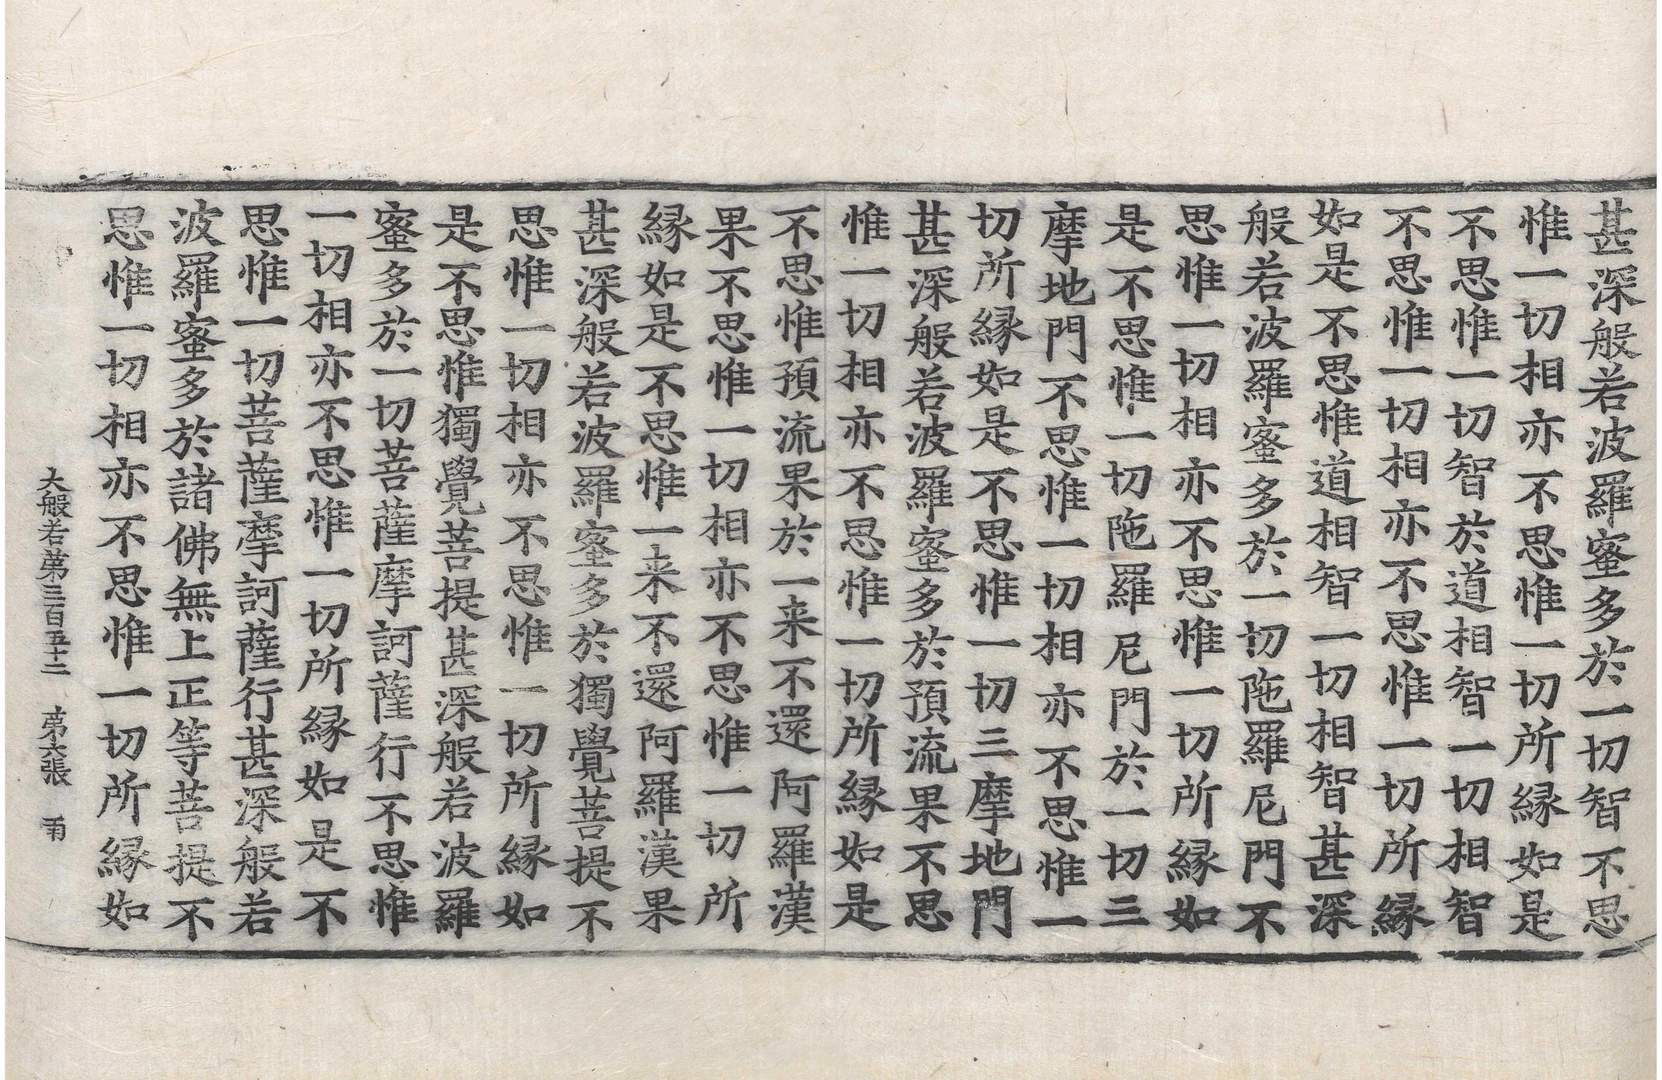 甚深般若波羅蜜多於一切智不思
惟一切相亦不思惟一切所縁如是
不思惟一切智於道相智一切相智
不思惟一切相亦不思惟一切所縁
如是不思惟道相智一切相智甚深
般若波羅蜜多於一切陁羅尼門不
思惟一切相亦不思惟一切所縁如
是不思惟一切陁羅尼門於一切三
摩地門不思惟一切相亦不思惟一
切所縁如是不思惟一切三摩地門
甚深般若波羅蜜多於預流果不思
惟一切相亦不思惟一切所縁如是
不思惟預流果於一来不還阿羅漢
果不思惟一切相亦不思惟一切所
縁如是不思惟一来不還阿羅漢果
甚深般若波羅蜜多於獨覺菩提不
思惟一切相亦不思惟一切所縁如
是不思惟獨覺菩提甚深般若波羅
蜜多於一切菩薩摩訶薩行不思惟
一切相亦不思惟一切所縁如是不
思惟一切菩薩摩訶薩行甚深般若
波羅蜜多於諸佛無上正等菩提不
思惟一切相亦不思惟一切所縁如
大般若第三百五十二 第六張 雨